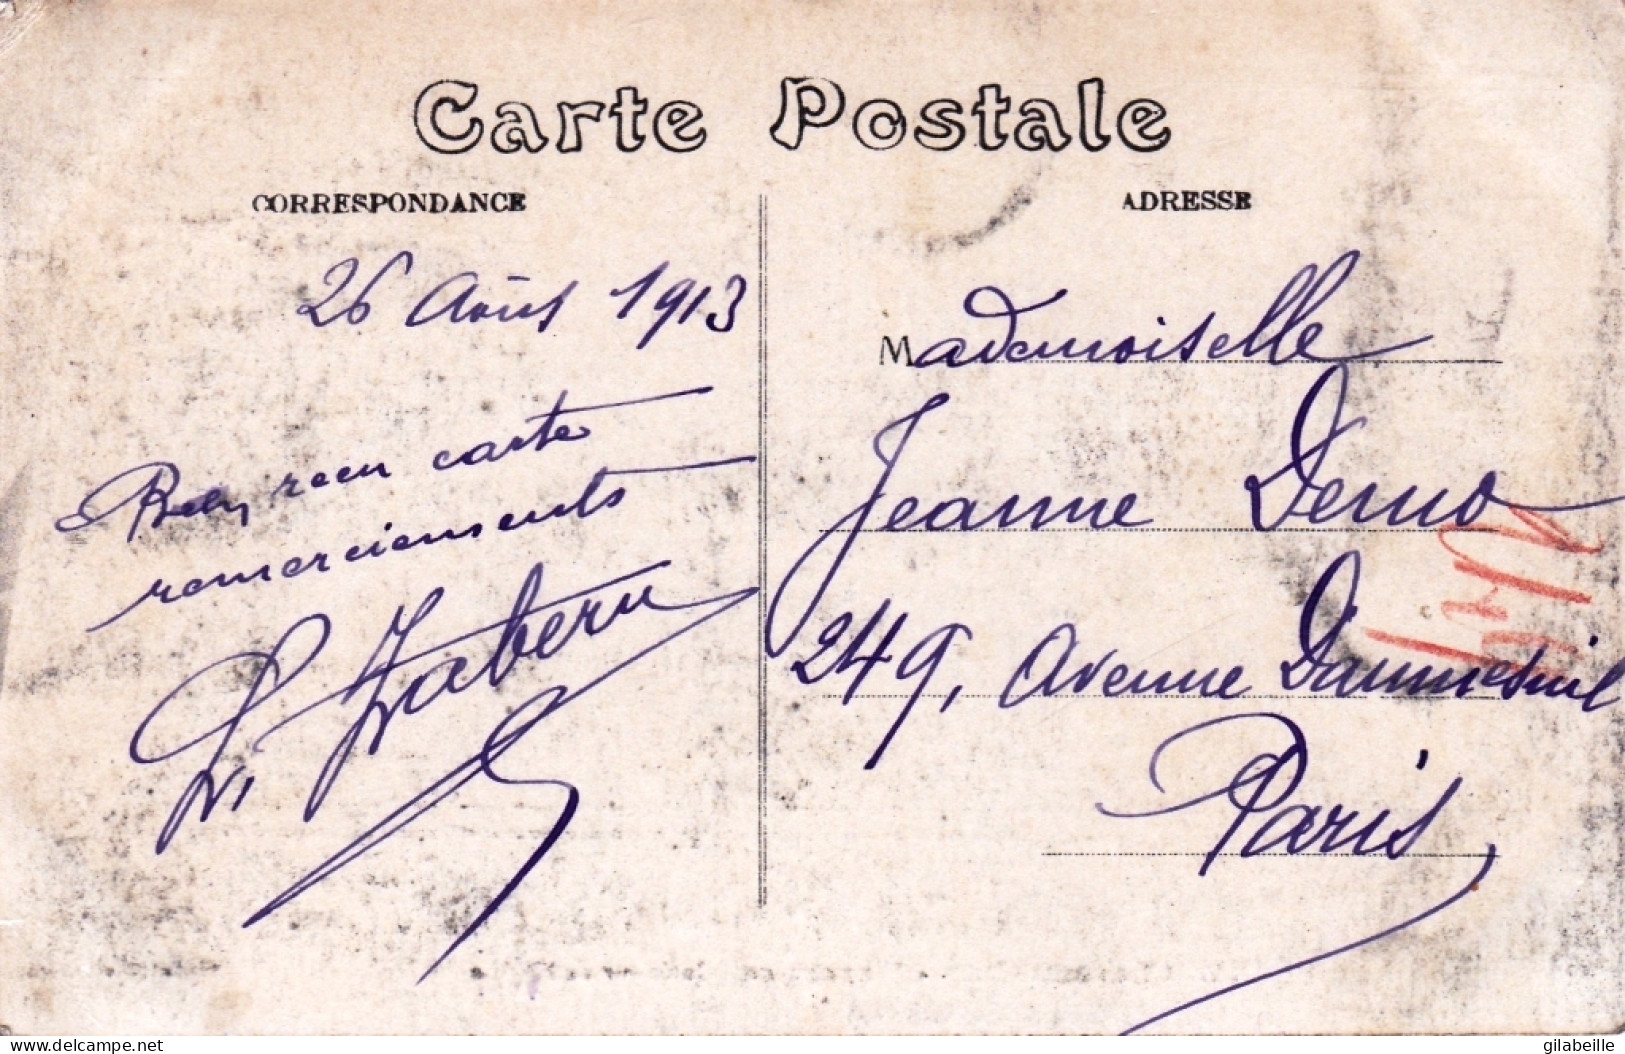 Carte Postale
CORRESPONDANCE
26 Août 1913
Bien reçu carte
remerciements
L. Zabern
ADRESSE
Mademoiselle
Jeanne Demo
249, Avenue Daumesnil
Paris
delcampe.net
gilabeille